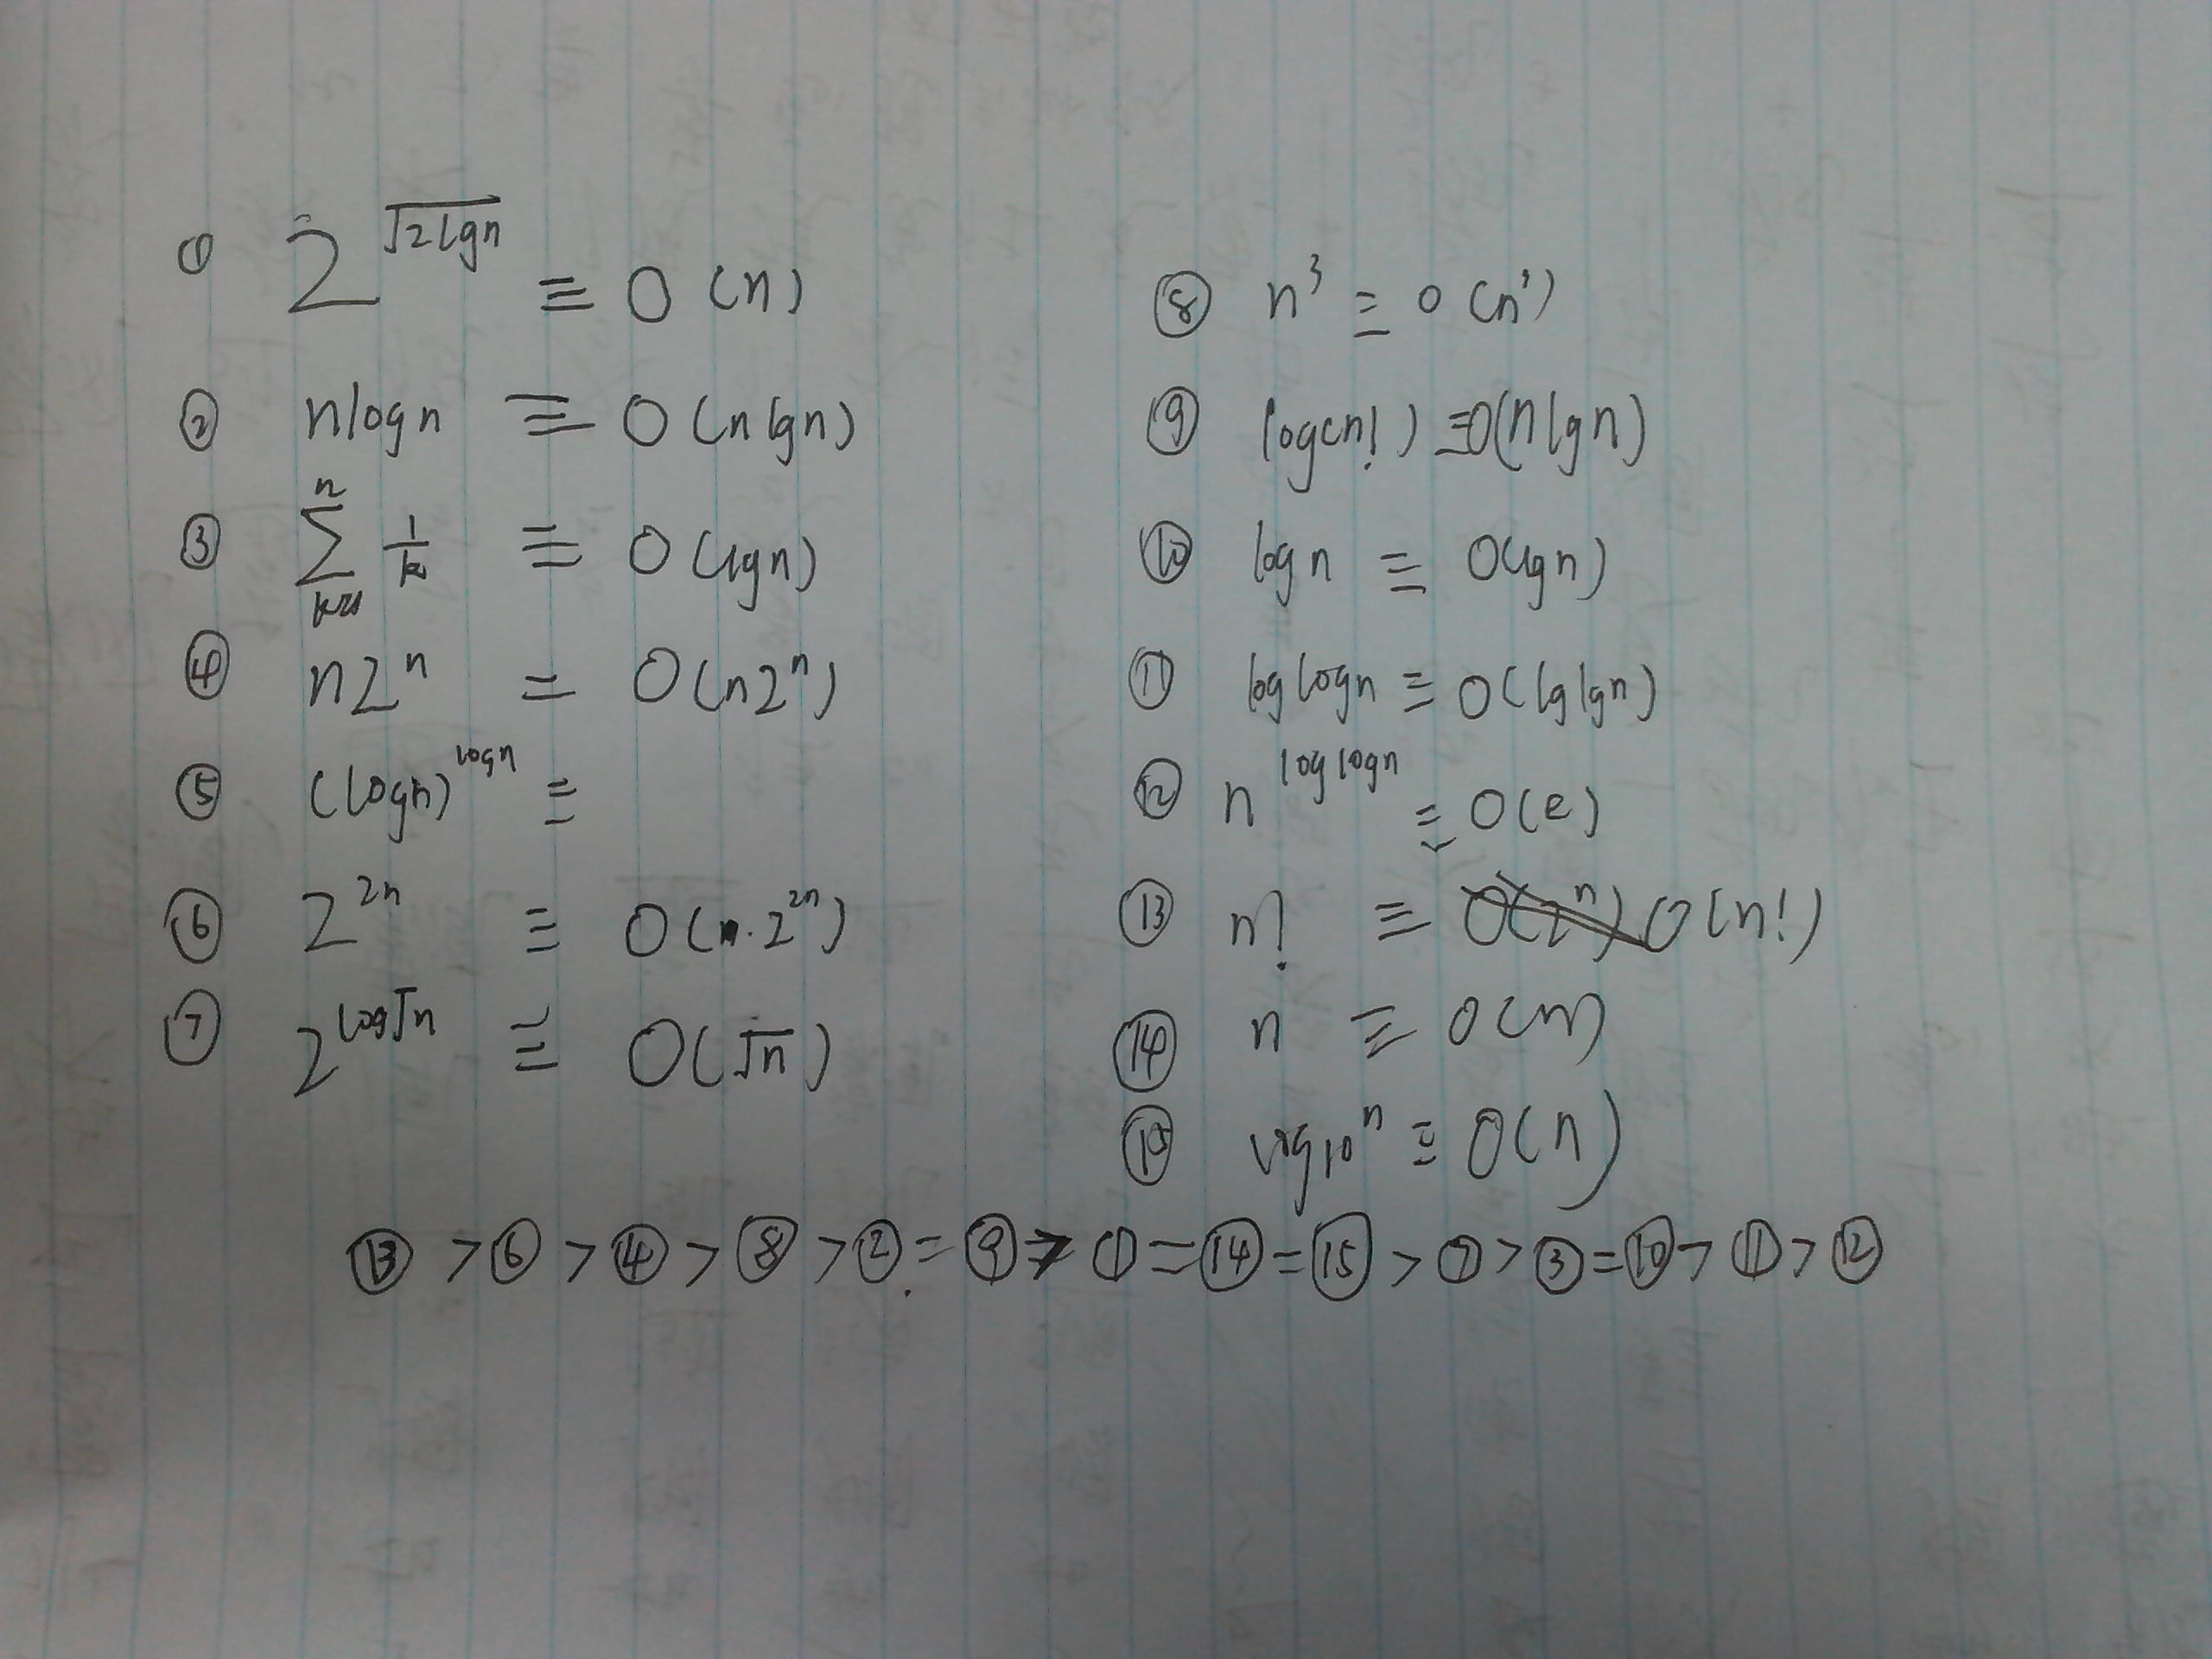 ① 2^√(2lgn) ≡ O(n)
② nlogn ≡ O(nlgn)
③ ∑_{k=1}^{n} 1/k ≡ O(lgn)
④ n2^n = O(n2^n)
⑤ (logn)^logn =
⑥ 2^2n ≡ O(n·2^2n)
⑦ 2^log√n ≡ O(√n)
⑧ n^3 ≡ O(n^3)
⑨ log(n!) ≡ O(nlgn)
⑩ logn ≡ O(lgn)
⑪ loglogn ≡ O(lglgn)
⑫ n^loglogn ≡ O(e)
⑬ n! ≡ O(2^n) O(n!)
⑭ n ≡ O(n)
⑮ log10^n ≡ O(n)
⑬ > ⑥ > ④ > ⑧ > ② = ⑨ > ① = ⑭ = ⑮ > ⑦ > ③ = ⑩ > ⑪ > ⑫